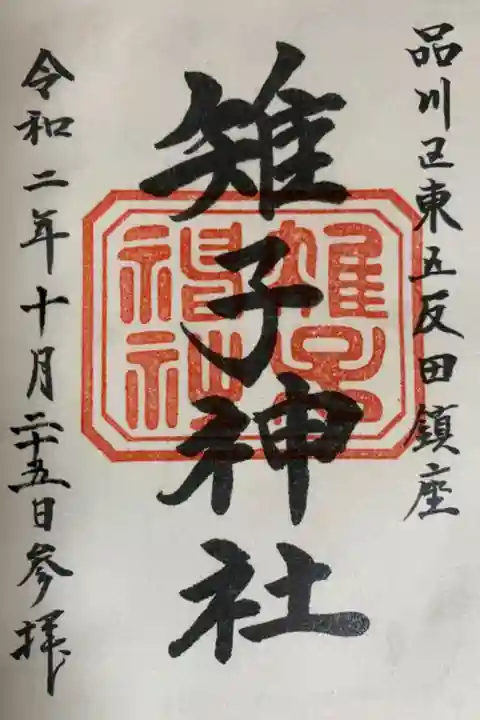 品川区東五反田鎮座
雉子神社
令和二年十月二十五日参拝
雉子
神社